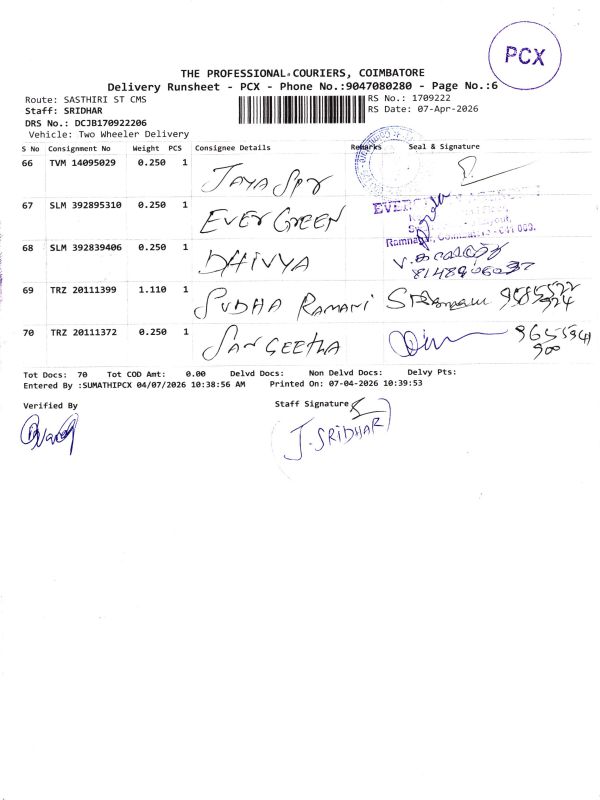 PCX
THE PROFESSIONAL COURIERS, COIMBATORE
Delivery Runsheet - PCX - Phone No.:9047080280 - Page No.:6
Route: SASTHIRI ST CMS RS No.: 1709222
Staff: SRIDHAR RS Date: 07-Apr-2026
DRS No.: DCJB170922206
Vehicle: Two Wheeler Delivery
S No Consignment No Weight PCS Consignee Details Remarks Seal & Signature
66 TVM 14095029 0.250 1 JAYA
67 SLM 392895310 0.250 1 EVER GREEN
68 SLM 392839406 0.250 1 DHIVYA
8148906037
69 TRZ 20111399 1.110 1 SUDHA RAMANI
70 TRZ 20111372 0.250 1 SANGEETHA
Tot Docs: 70 Tot COD Amt: 0.00 Delvd Docs: Non Delvd Docs: Delvy Pts:
Entered By :SUMATHIPCX 04/07/2026 10:38:56 AM Printed On: 07-04-2026 10:39:53
Verified By Staff Signature
J. SRIDHAR